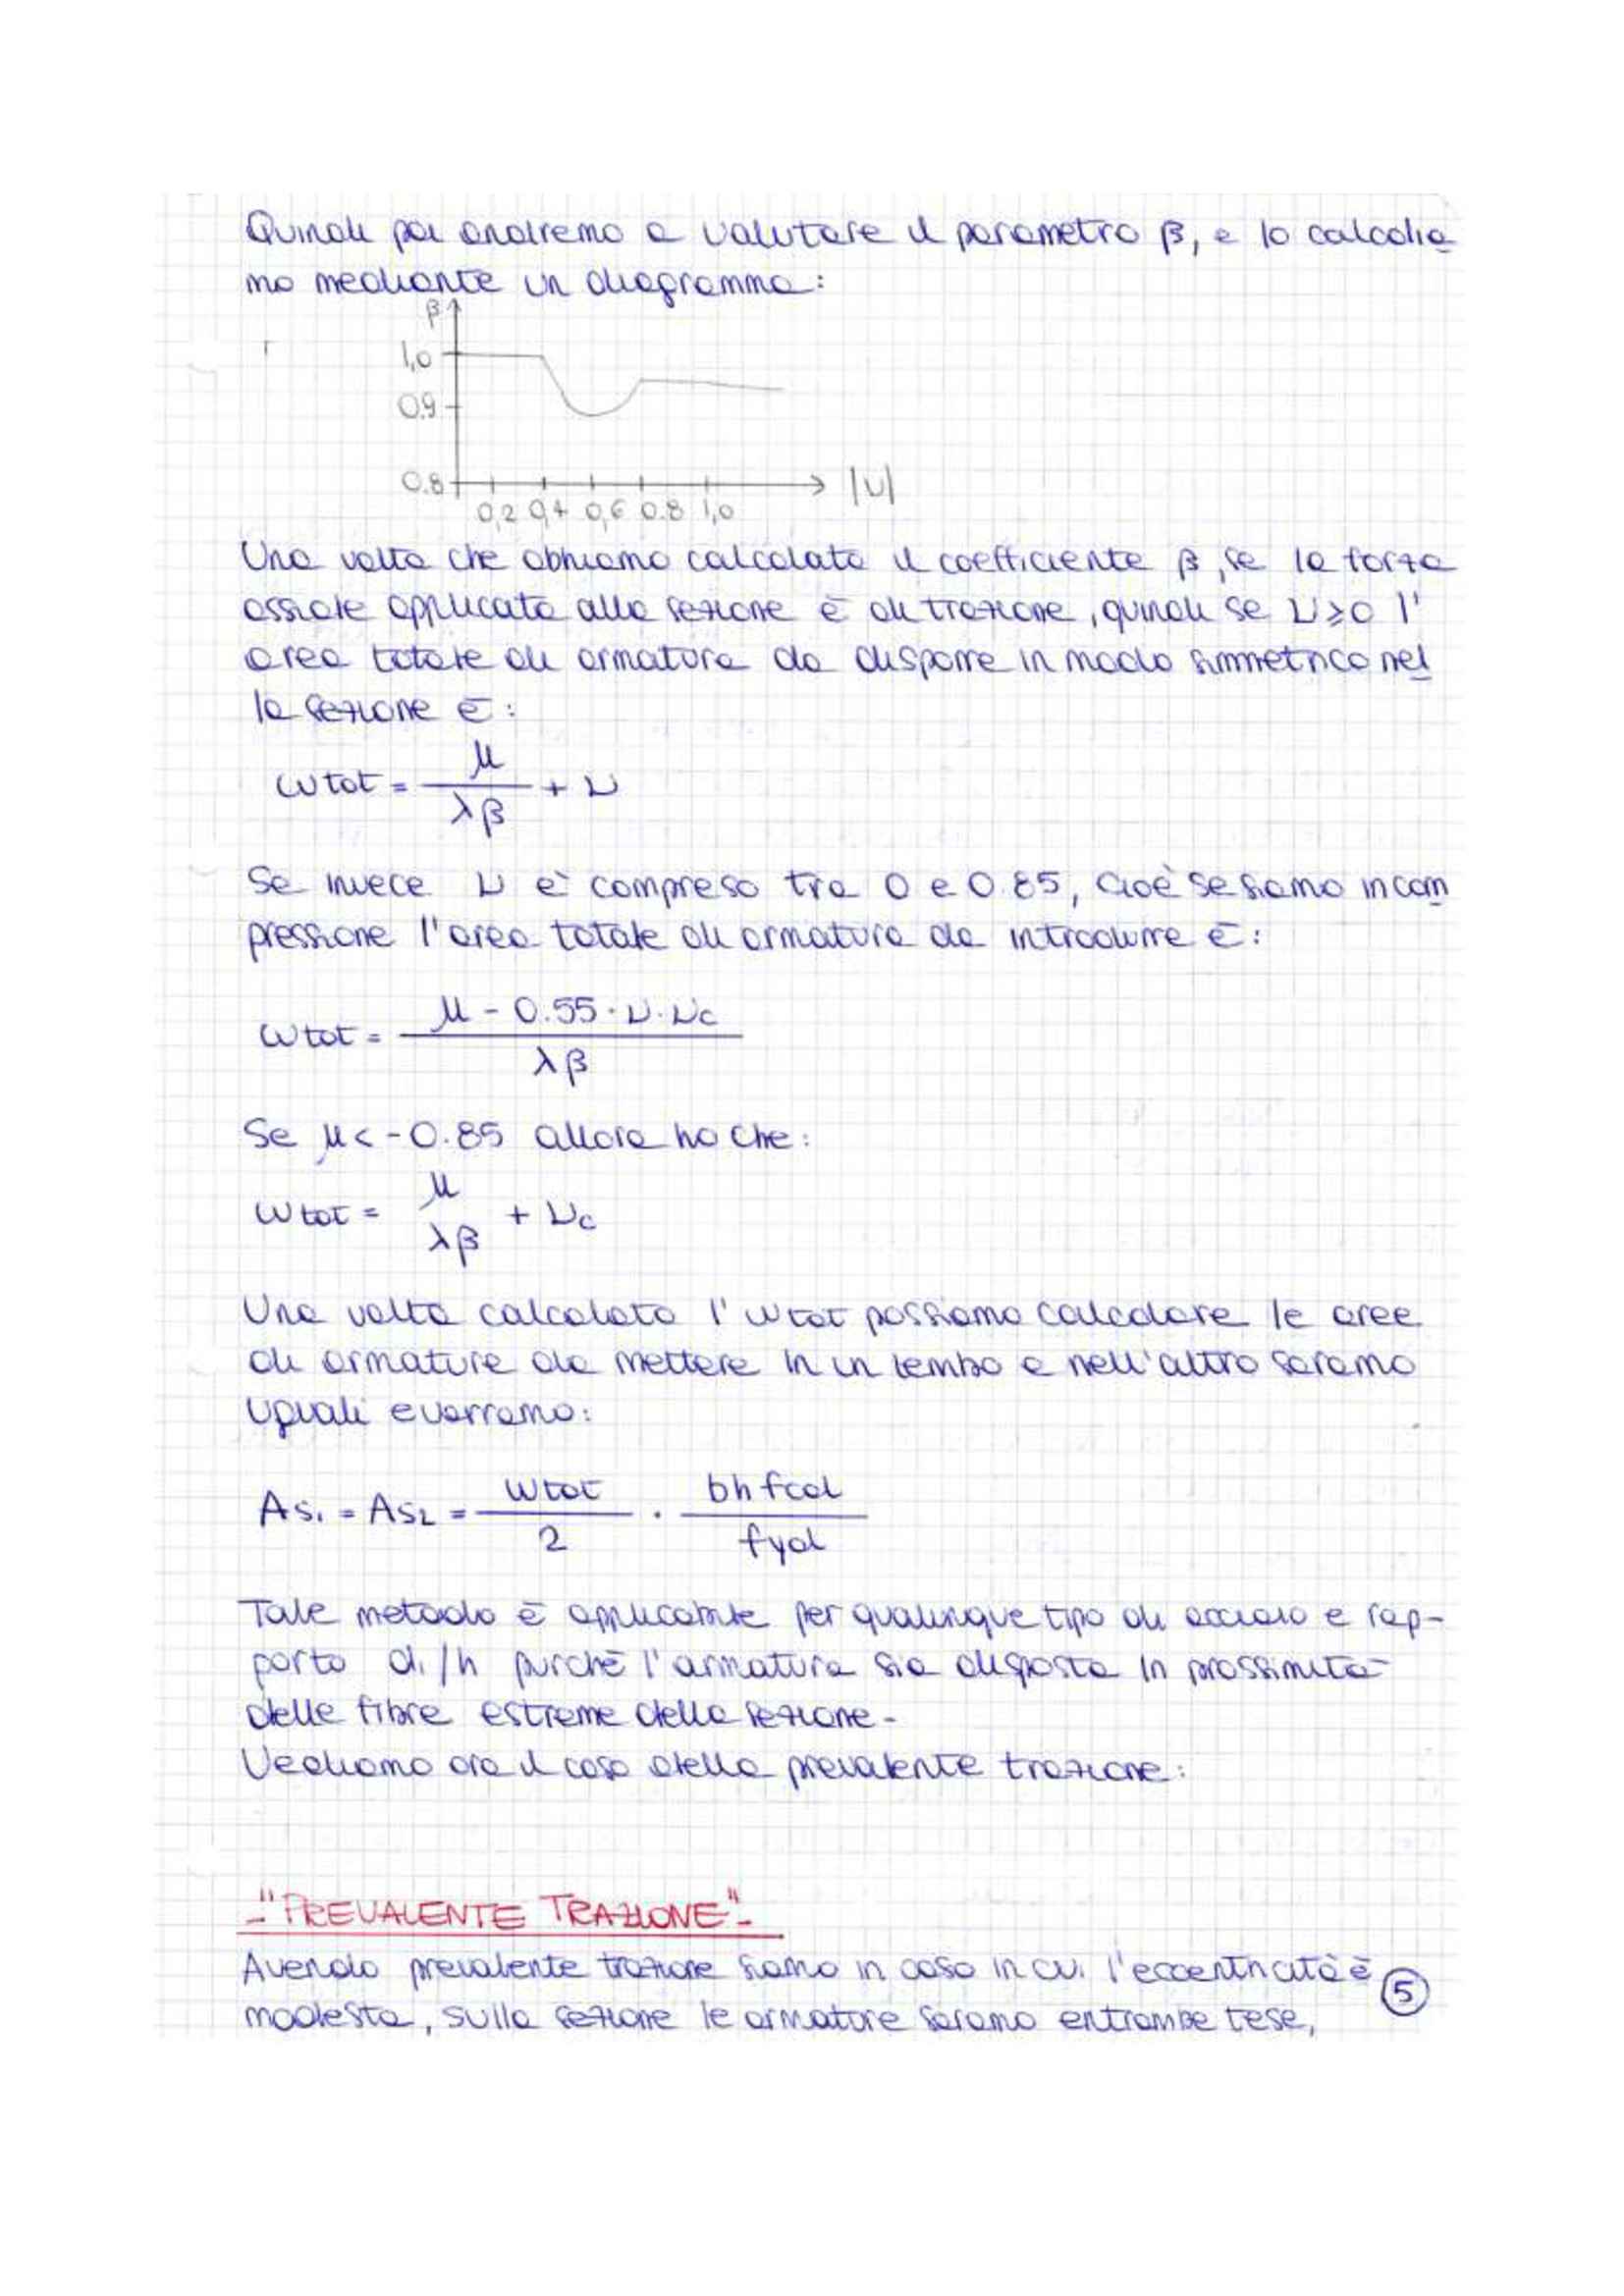 Quindi poi andremo a valutare il parametro β, e lo calcolia
mo mediante un diagramma:
β
1,0
0.9
0.8
|ν|
0,2 0,4 0,6 0.8 1,0
Una volta che abbiamo calcolato il coefficiente β, se la forza
assiale applicata alla sezione è di trazione, quindi se ν≥0 l'
area totale di armatura da disporre in modo simmetrico nel
la sezione è:
ωtot = μ/λβ + ν
Se invece ν è compreso tra 0 e 0.85, cioè se siamo in com
pressione l'area totale di armatura da introdurre è:
ωtot = μ - 0.55·ν·νc / λβ
Se μ < -0.85 allora ho che:
ωtot = μ/λβ + νc
Una volta calcolato l'ωtot possiamo calcolare le aree
di armature da mettere in un lembo e nell'altro saranno
uguali e varranno:
As1 = As2 = ωtot/2 · bh fcd/fyd
Tale metodo è applicabile per qualunque tipo di acciaio e rap-
porto d1/h purchè l'armatura sia disposta in prossimità
delle fibre estreme della sezione-
Vediamo ora il caso della prevalente trazione:
-"PREVALENTE TRAZIONE"-
Avendo prevalente trazione siamo in caso in cui l'eccentricità è
modesta, sulla sezione le armature saranno entrambe tese,
5